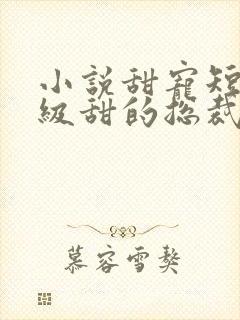 小說甜寵短
級甜的總裁
慕容雪獒